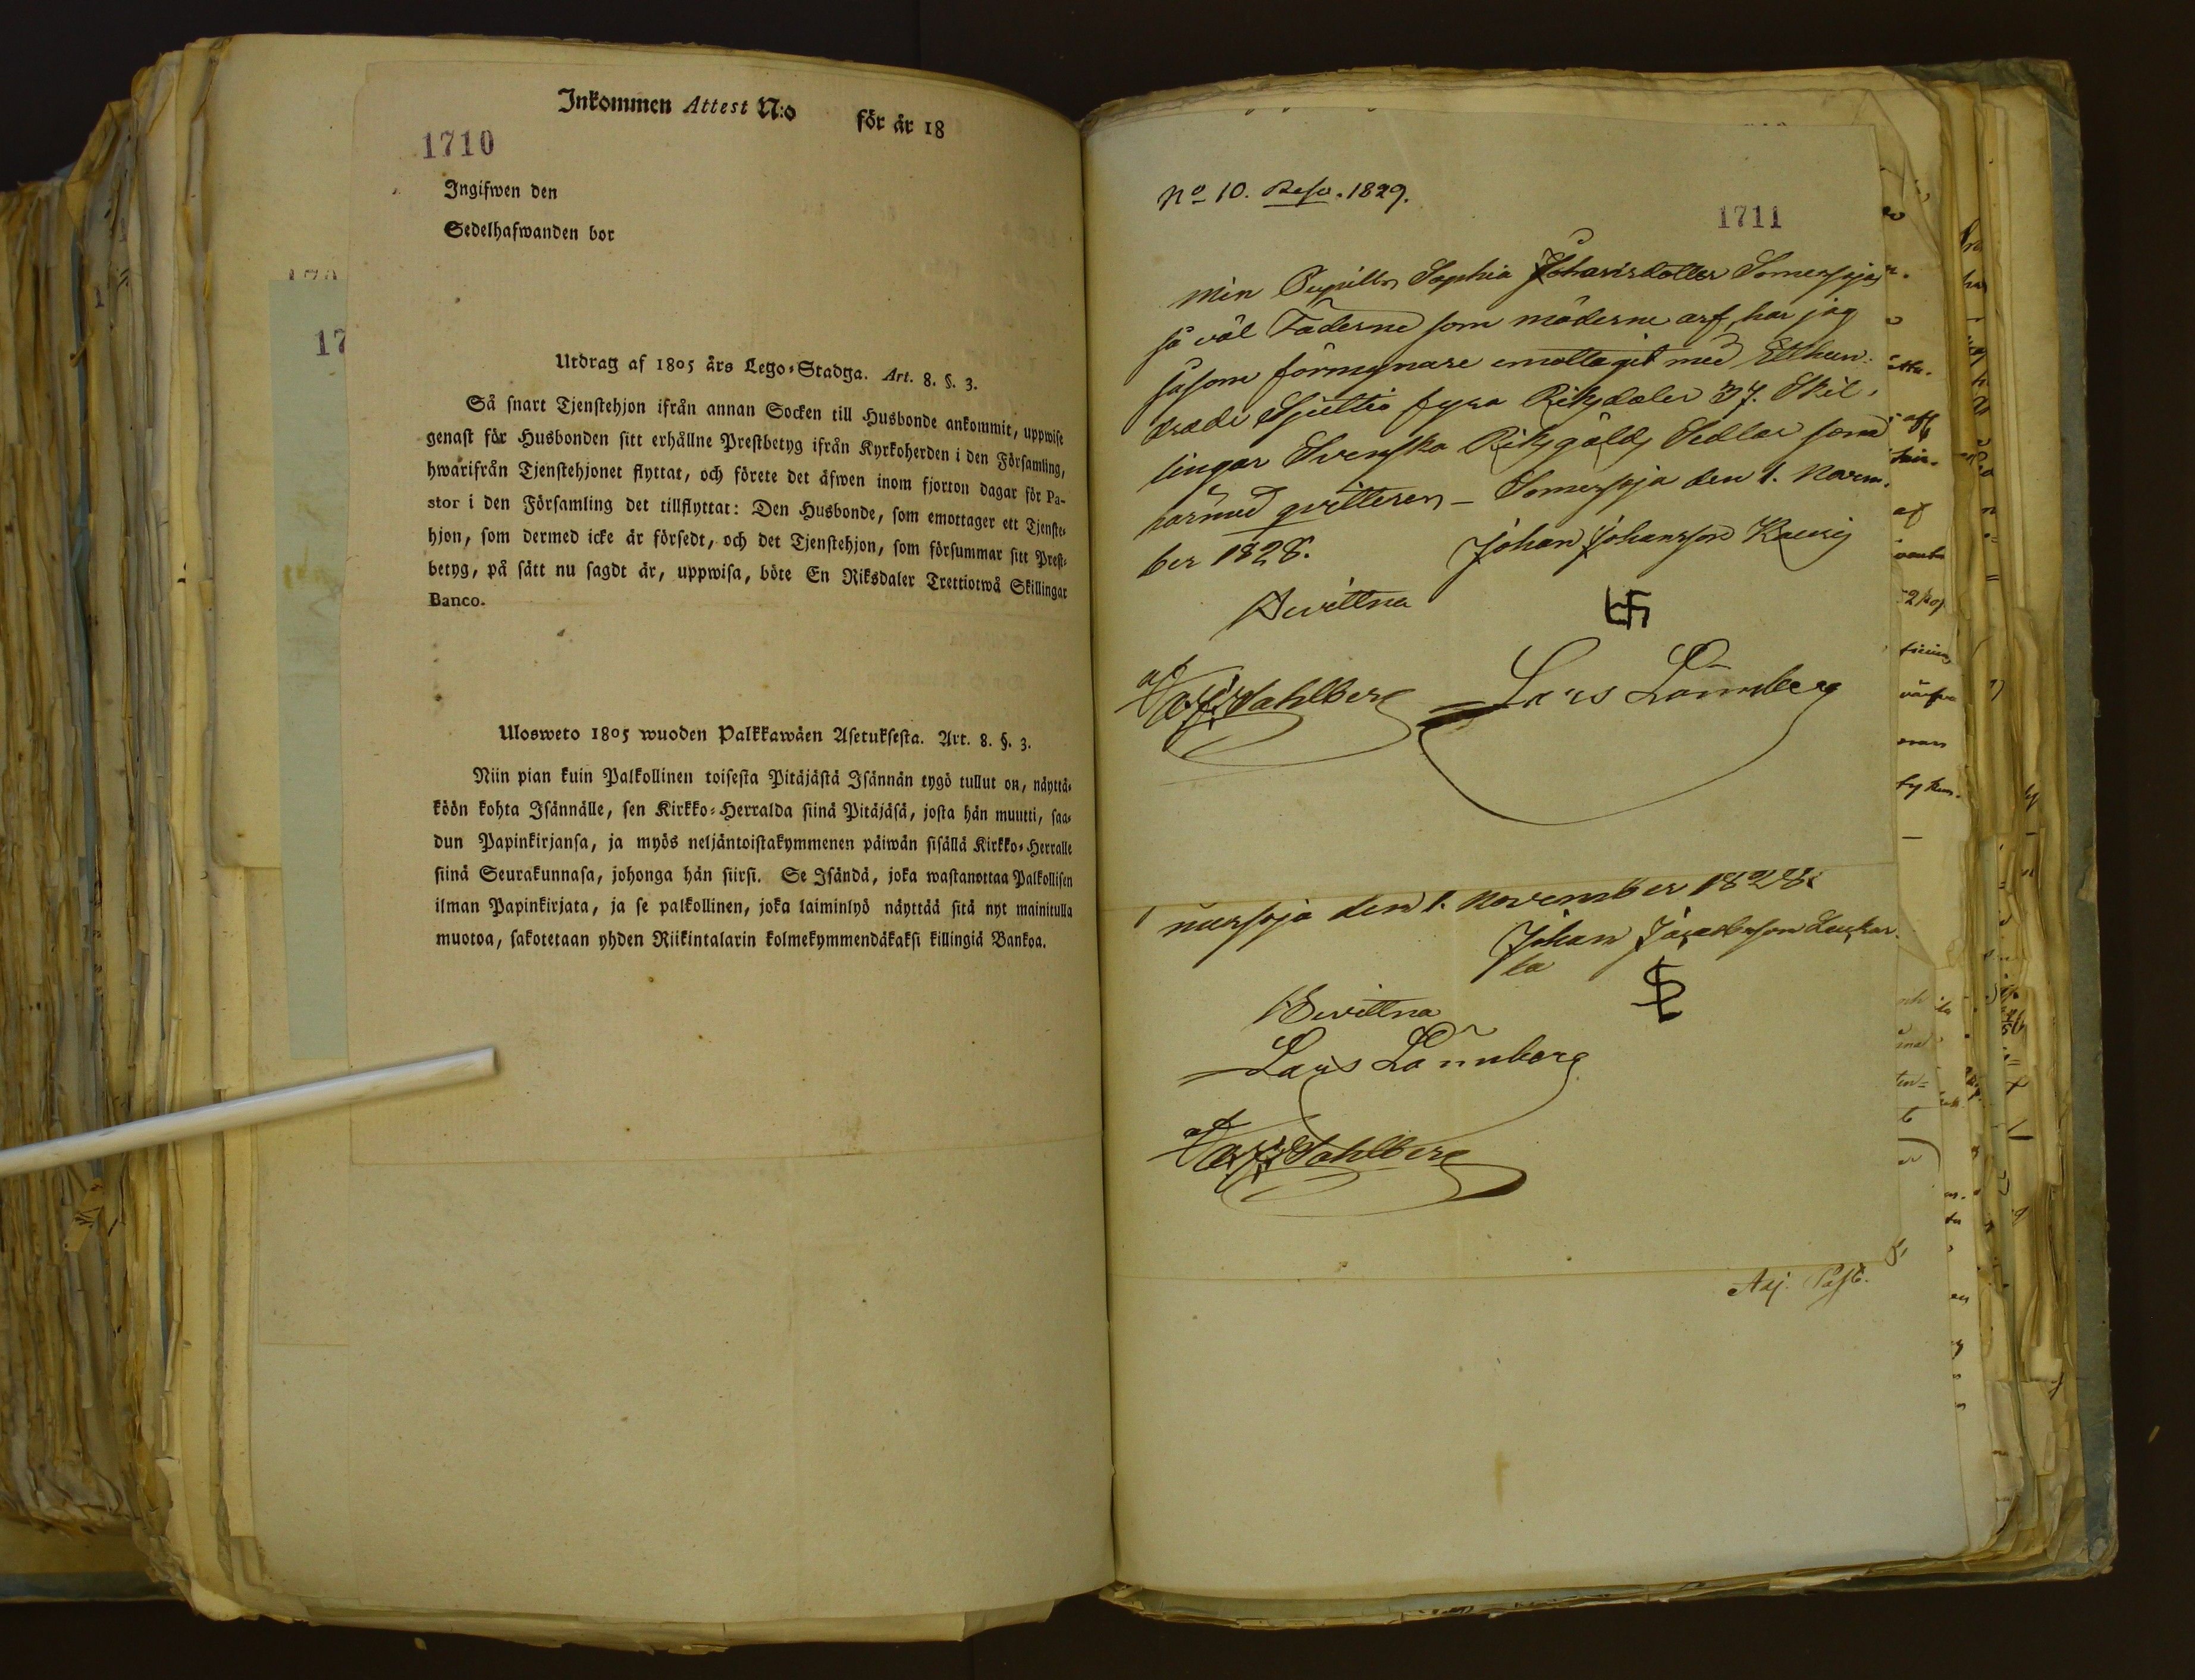 Inkommen Attest N:o för år 18
1710
Ingifwen den
Sedelhafwanden bor
17
Utdrag af 1805 års Lego-Stadga. Art. 8. §. 3.
Så snart Tjenstehjon ifrån annan Socken till Husbonde ankommit, uppwise
genast för Husbonden sitt erhållne Prestbetyg ifrån Kyrkoherden i den Församling,
hwarifrån Tjenstehjonet flyttat, och förete det äfwen inom fjorton dagar för Pa-
stor i den Församling det tillflyttat: Den Husbonde, som emottager ett Tjenste-
hjon, som dermed icke är försedt, och det Tjenstehjon, som försummar sitt Prest-
betyg, på sätt nu sagdt är, uppwisa, böte En Riksdaler Trettiotwå Skillingar
Banco.
Ulosweto 1805 wuoden Palkkawäen Asetuksesta. Art. 8. §. 3.
Niin pian kuin Palkollinen toisesta Pitäjästä Isännän tygö tullut on, näyttä-
köön kohta Isännälle, sen Kirkko-Herralda siinä Pitäjäsä, josta hän muutti, saa-
dun Papinkirjansa, ja myös neljäntoistakymmenen päiwän sisällä Kirkko-Herralle
siinä Seurakunnasa, johonga hän siirsi. Se Isändä, joka wastanottaa Palkollisen
ilman Papinkirjata, ja se palkollinen, joka laiminlyö näyttää sitä nyt mainitulla
muotoa, sakotetaan yhden Riikintalarin kolmekymmendäkaksi killingiä Bankoa.
No 10. 1829.
1711
Min Pupills Sophia Johansdotter Somersoja
så väl Fäderne som möderne arf, har jag
såsom förmynare emottagit med Etthun-
drade Sjuttio fyra Riksdaler 37. Skil-
lingar Svenska Riksgälds Sedlar som
härmed qvitteres - Somersoja den 1. Novem-
ber 1828. Johan Johansson
Bevittna
Dahlberg Lars Lönnberg
mersoja den 1. November 1828.
Johan
la
Bevittna
Lars Lönnberg
Dahlberg
Adj. Past.